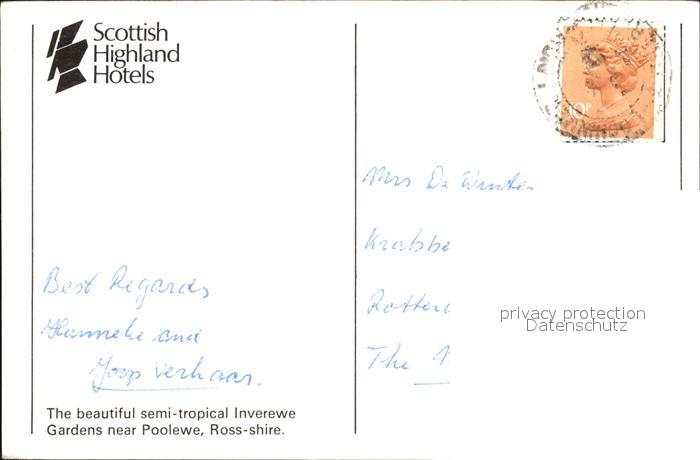 Scottish
Highland
Hotels
10P
Mrs De Winte
Krabbe
Rotterd
privacy protection
Datenschutz
The N
Best Regards
Hanneke and
Joop Verhaar.
The beautiful semi-tropical Inverewe
Gardens near Poolewe, Ross-shire.